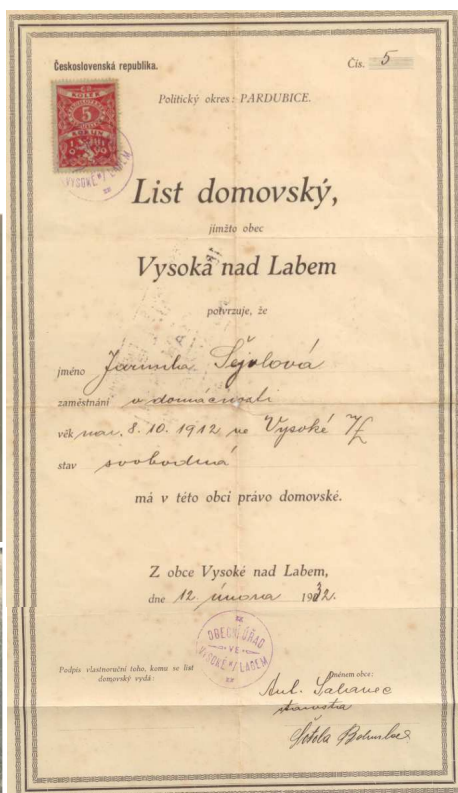 Československá republika.
Čís. 5
Politický okres: PARDUBICE.
KOLEK
5
KORUN
VYSOKÉ N/ LABEM
List domovský,
jímžto obec
Vysoká nad Labem
potvrzuje, že
jméno Jarmila
zaměstnání v domácnosti
věk nar. 8. 10. 1912 ve Vysoké n/L
stav svobodná
má v této obci právo domovské.
Z obce Vysoké nad Labem,
dne 12. února 1932.
OBECNÍ ÚŘAD
VE
VYSOKÉ N/ LABEM
Podpis vlastnoruční toho, komu se list
domovský vydá:
Jménem obce:
Ant.
starosta